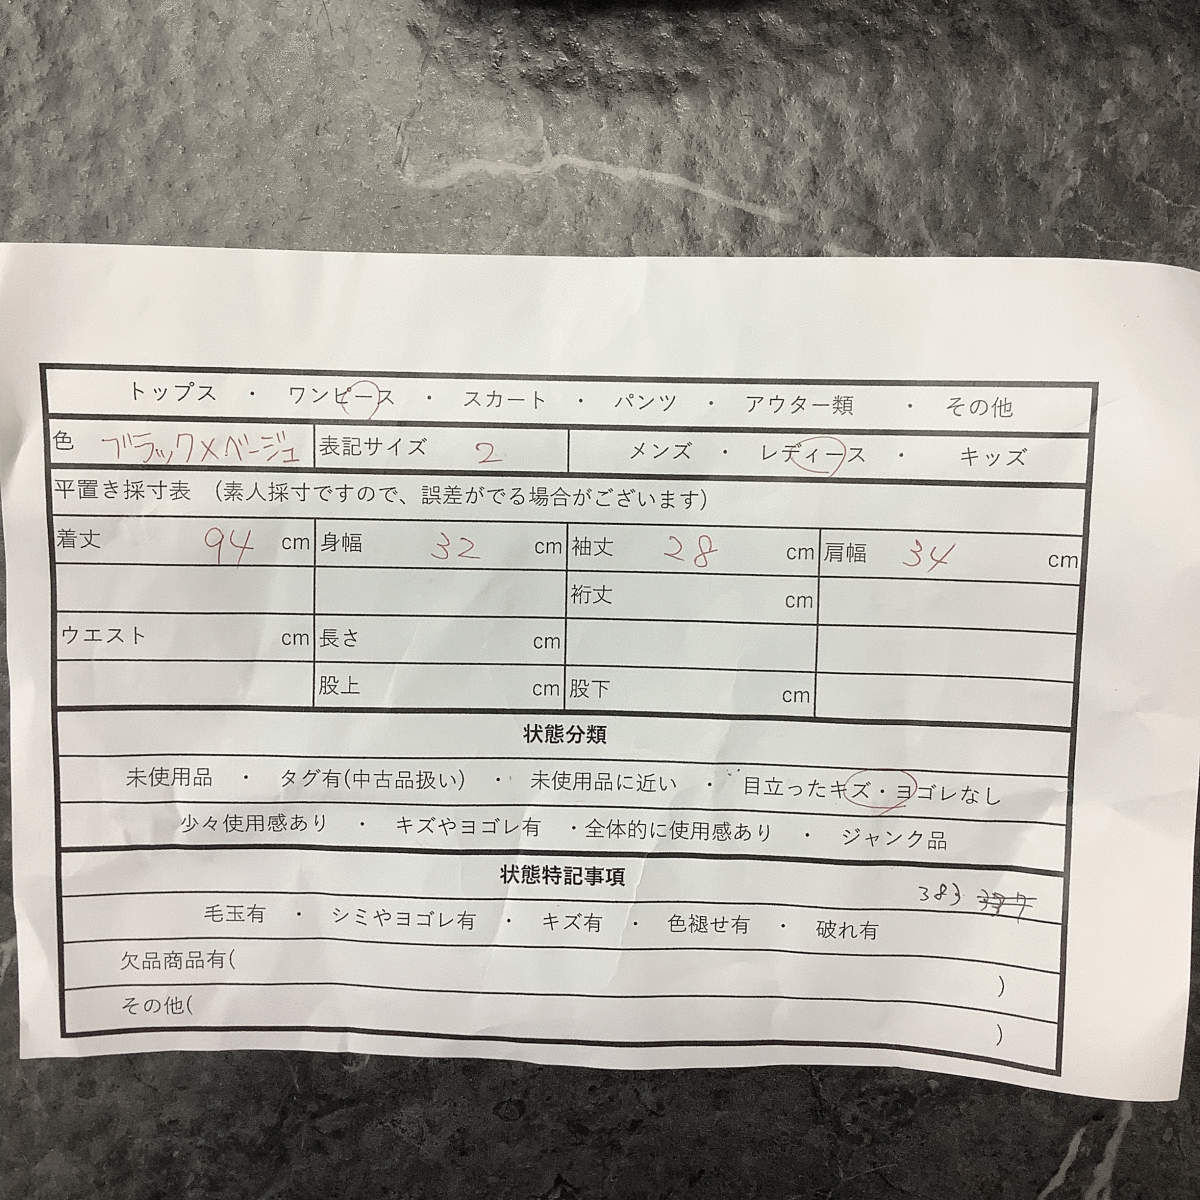 トップス ・ ワンピース ・ スカート ・ パンツ ・ アウター類 ・ その他
色 ブラック×ベージュ 表記サイズ 2 メンズ ・ レディース ・ キッズ
平置き採寸表 (素人採寸ですので、誤差がでる場合がございます)
着丈 94 cm 身幅 32 cm 袖丈 28 cm 肩幅 34 cm
裄丈 cm
ウエスト cm 長さ cm
股上 cm 股下 cm
状態分類
未使用品 ・ タグ有(中古品扱い) ・ 未使用品に近い ・ 目立ったキズ・ヨゴレなし
少々使用感あり ・ キズやヨゴレ有 ・全体的に使用感あり ・ ジャンク品
状態特記事項
383
毛玉有 ・ シミやヨゴレ有 ・ キズ有 ・ 色褪せ有 ・ 破れ有
欠品商品有( )
その他( )